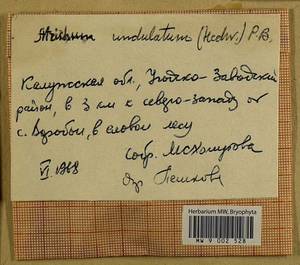 Atrichum undulatum (Hedw.) P.B.
Калужская обл., Угодско-Заводский
район, в 3 км к северо-западу от
с. в еловом лесу
собр.
VI.1968
опр. Пешкова
Herbarium MW, Bryophyta
MW 9 002 528